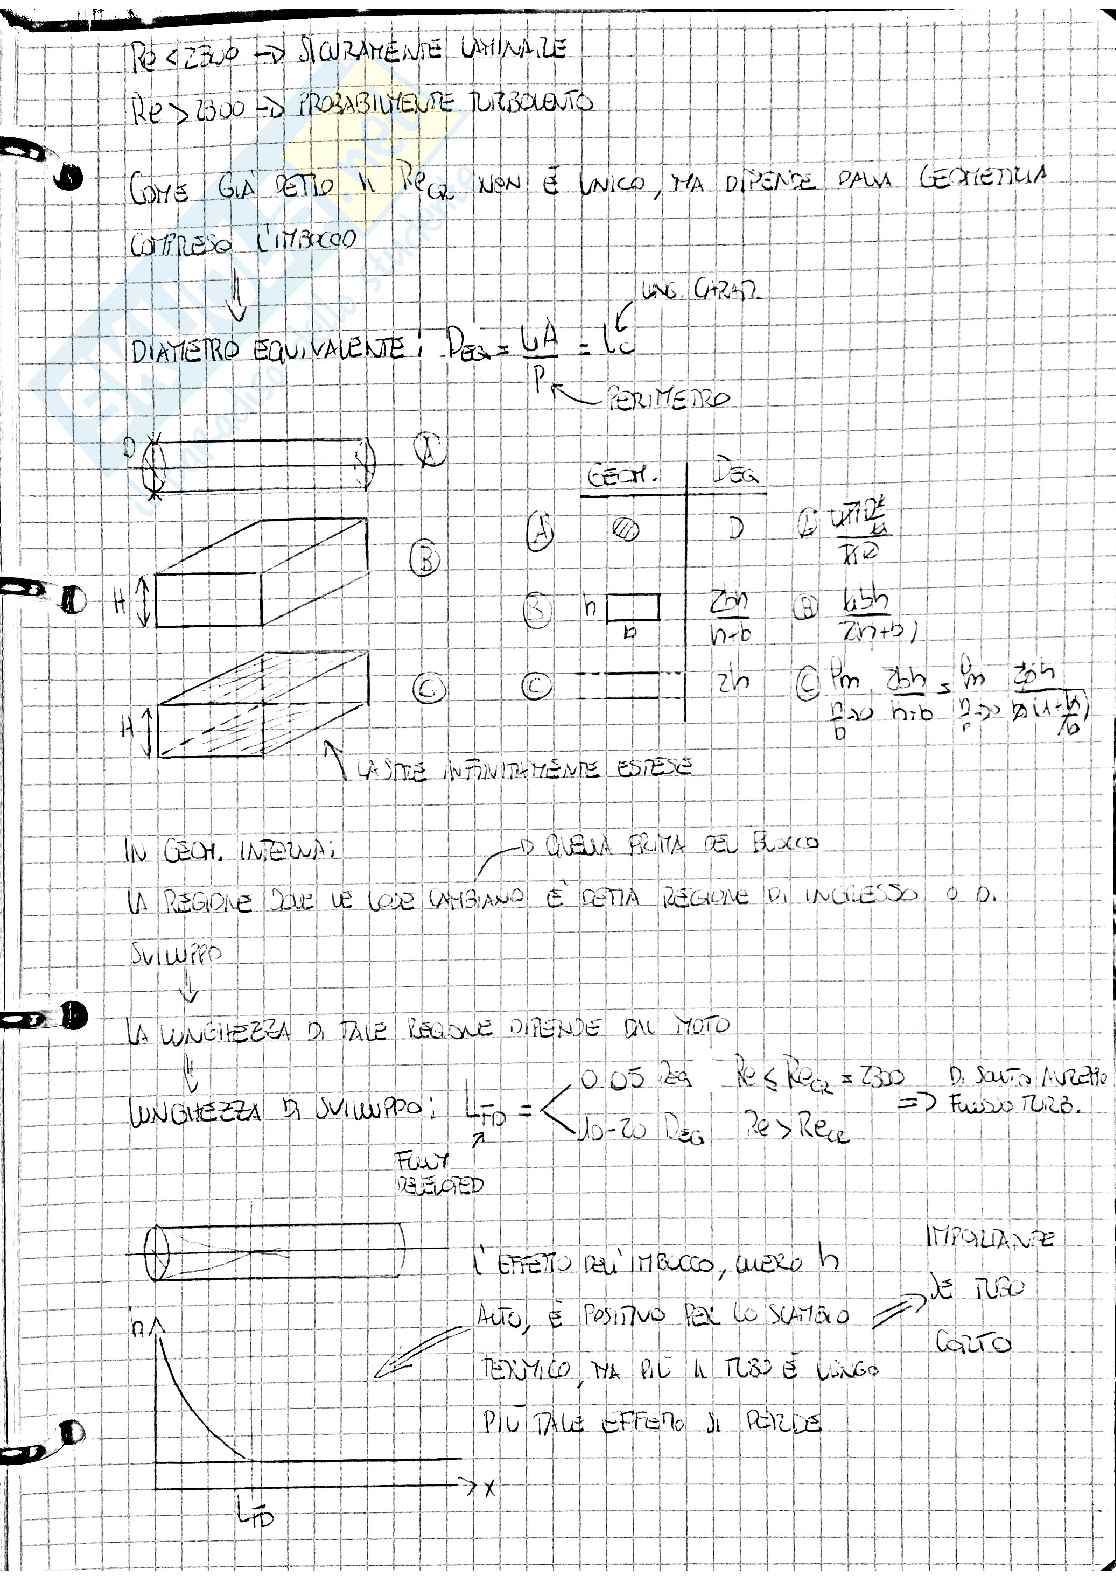 Re < 2300 → SICURAMENTE LAMINARE
Re > 2300 → PROBABILMENTE TURBOLENTO
COME GIÀ DETTO IL Re_CR NON È UNICO, MA DIPENDE DALLA GEOMETRIA
COMPRESO L'IMBOCCO
LUNG. CARAT.
DIAMETRO EQUIVALENTE: D_EQ = 4A/P = L_C
PERIMETRO
D
A
GEOM. D_EQ
A D
H
B
B h b 2bh/(h+b) B 4bh/2(h+b)
H
C
C 2h C
LASTRE INFINITAMENTE ESTESE
IN GEOM. INTERNA:
→ QUELLA PRIMA DEL BLOCCO
LA REGIONE DOVE LE COSE CAMBIANO È DETTA REGIONE DI INGRESSO O DI
SVILUPPO
LA LUNGHEZZA DI TALE REGIONE DIPENDE DAL MOTO
LUNGHEZZA DI SVILUPPO: L_FD =
0.05 Re Re ≤ Re_CR = 2300
10-20 D_EQ Re > Re_CR
⇒ DI SOLITO AVREMO
FLUSSO TURB.
FULLY
DEVELOPED
L'EFFETTO DELL'IMBOCCO, OVVERO h
ALTO, È POSITIVO PER LO SCAMBIO
TERMICO, MA PIÙ IL TUBO È LUNGO
PIÙ TALE EFFETTO SI PERDE
IMPORTANTE
SE TUBO
CORTO
h
x
L_FD